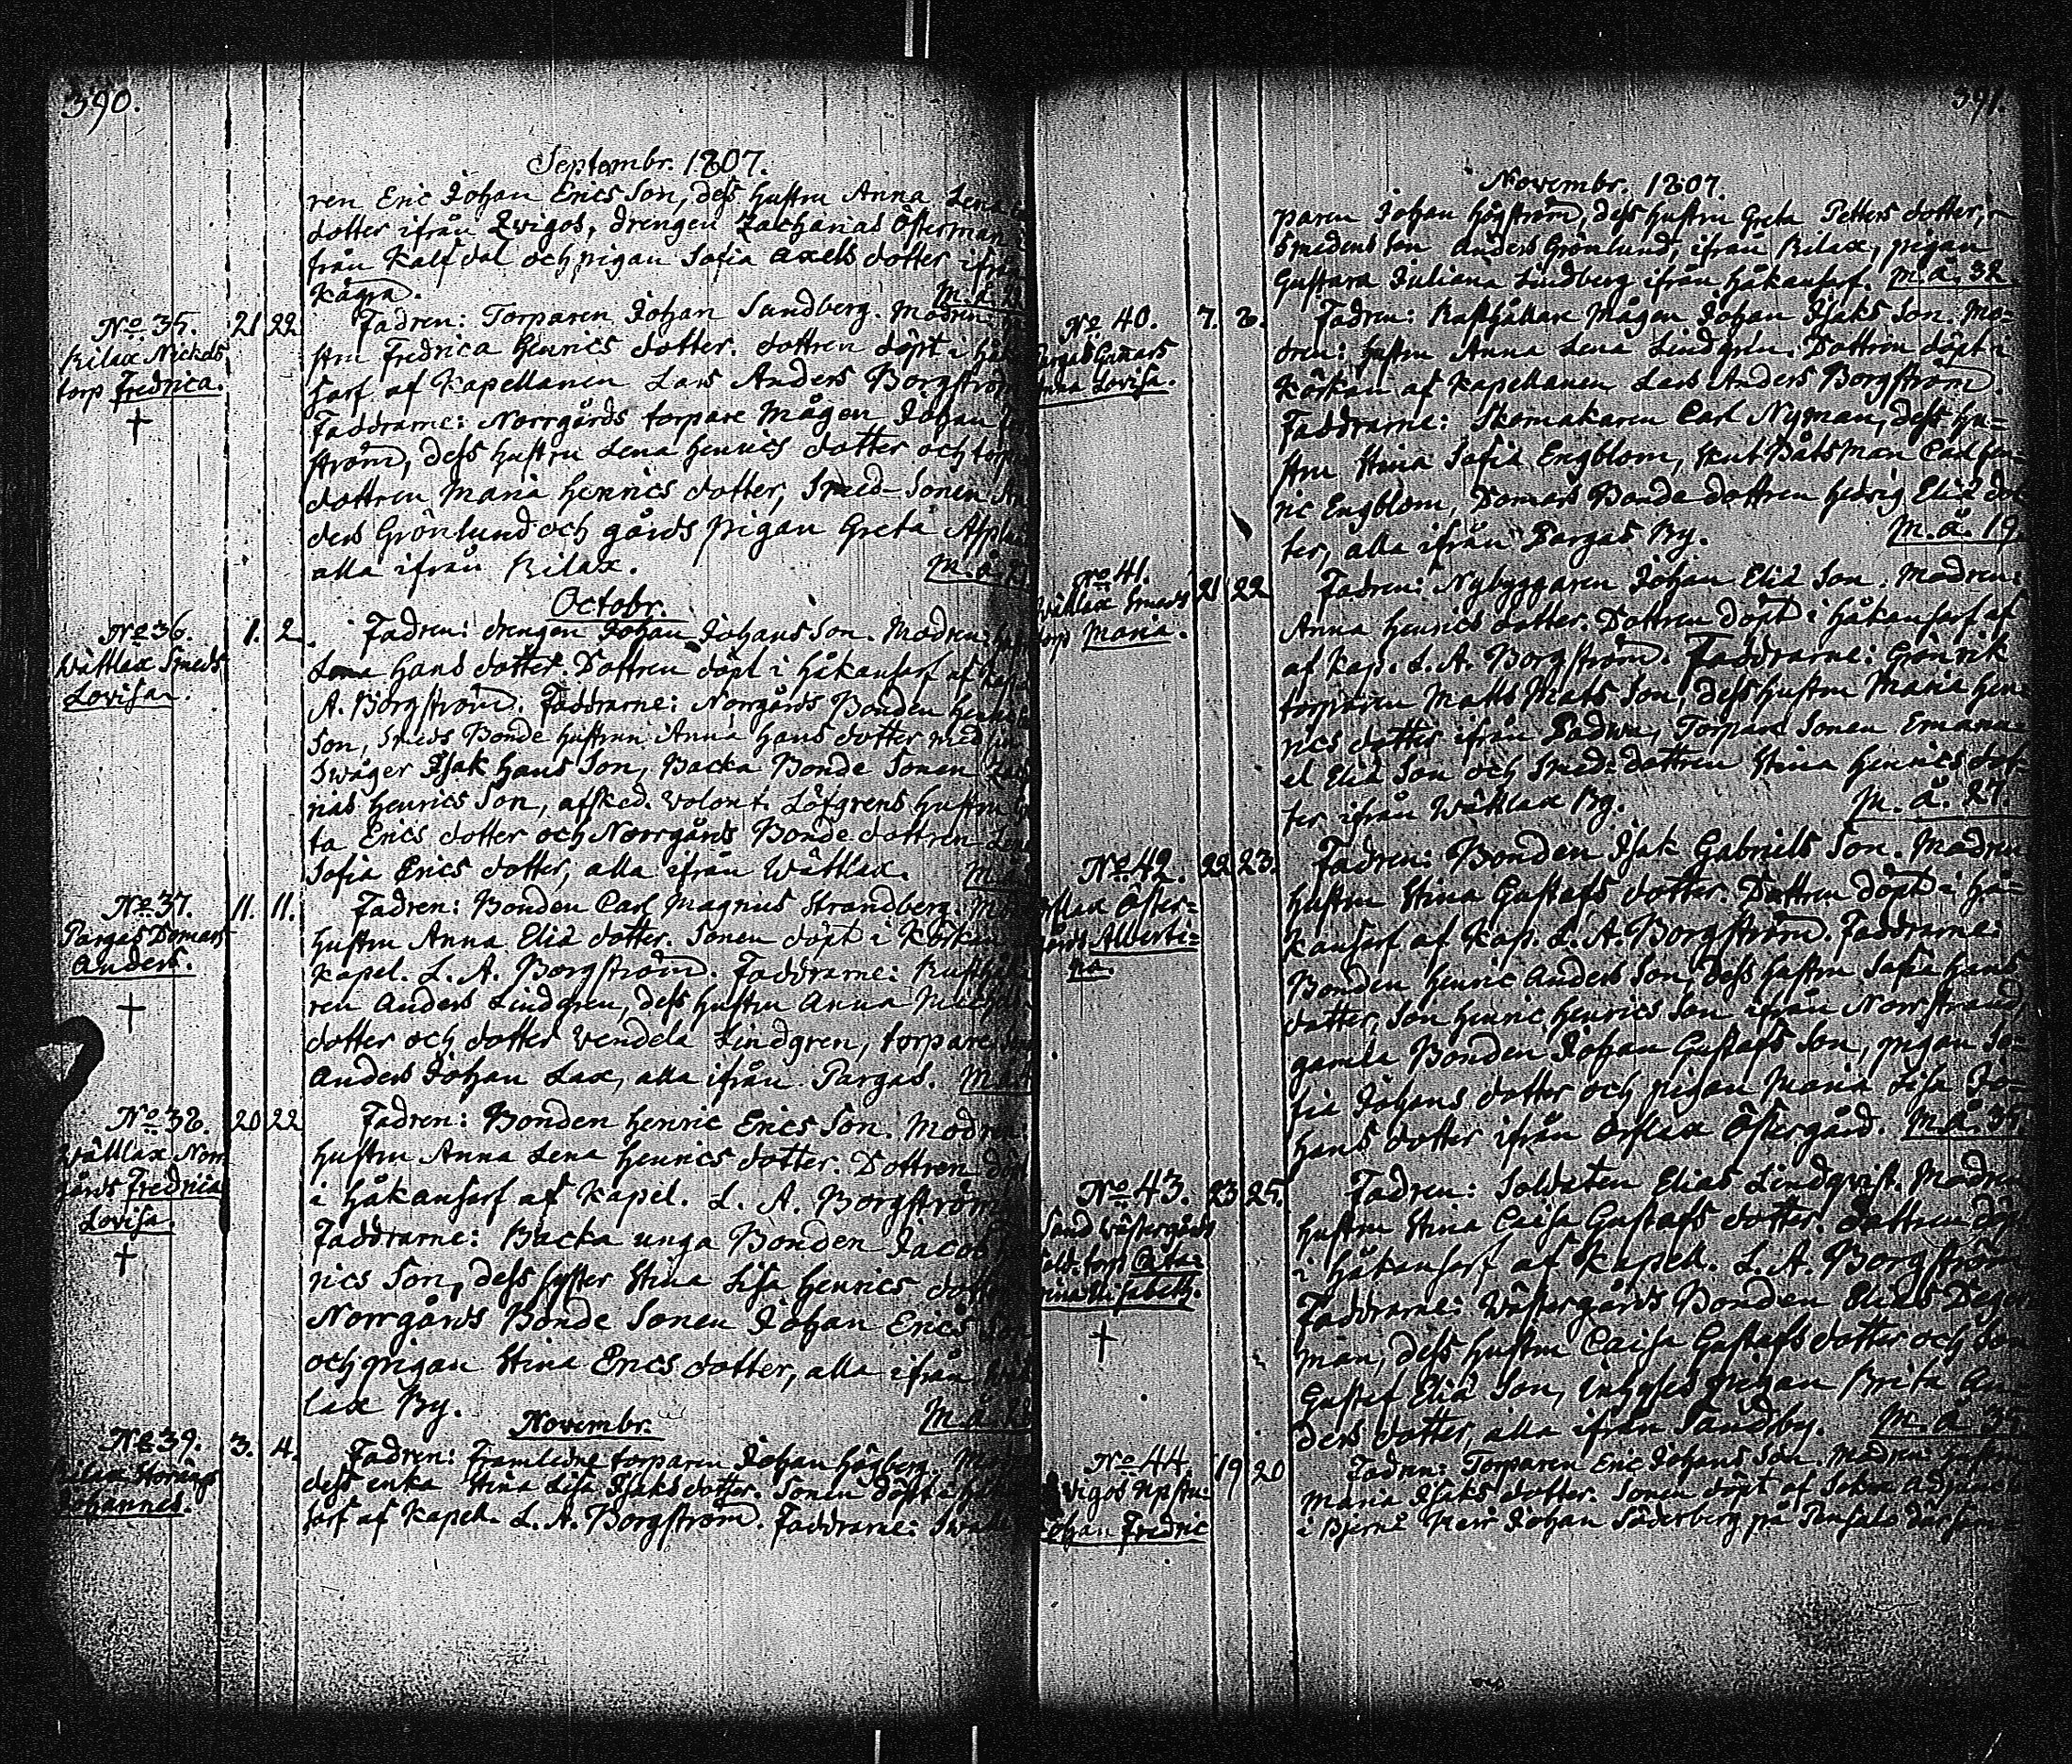 390.
Septembr. 1807.
ren Eric Johan Erics Son, dess hustru Anna Lena
dotter ifrån Zvigos, drengen Zacharias Österman
från Kalfdal och pigan Sofia Axels dotter ifrån
Kågra. M. å.
No 35. 21 22 Fadren: Torparen Johan Sundberg. Modren:
Kilax Nickels stru Fredrica Henrics dotter. dottren döpt i Håkan
torp Fredrica. sarf af Kapellanen Lars Anders Borgström
† Faddrarne: Norrgårds torpare Mågen Johan
ström, dess hustru Lena Henrics dotter och torpare
dottren Maria Henrics dotter, Smed-Sonen An
ders Grönlund och gårds pigan Greta
alla ifrån Kilax. M. å.
Octobr.
No 36. 1. 2. Fadren: drengen Johan Johans Son. Modren:
Wättlax Smeds Lena Hans dotter. Dottren döpt i Håkansarf af Kap.
Lovisa. A. Borgström. Faddrarne: Norrgårds Bonden Henric
Son, Smeds Bonde hustrun Anna Hans dotter med sin
Swåger Isak Hans Son, Backa Bonde Sonen
rias Henrics Son, afsked. Volont. Löfgrens hustru
ta Erics dotter och Norrgårds Bonde dottren
Sofia Erics dotter, alla ifrån Wättlax. M. å.
No 37. 11. 11. Fadren: Bonden Carl Magnus Strandberg.
Pargas Domars hustru Anna Eliæ dotter. Sonen döpt i Körkan
Anders. Kapel. L. A. Borgström. Faddrarne: Rusthålla
† ren Anders Lindgren, dess hustru Anna
dotter och dotter Vendela Lindgren, torpare
Anders Johan Lax, alla ifrån Pargas. M. å.
No 38. 20 22 Fadren: Bonden Henric Erics Son. Modren:
Wättlax Norr hustru Anna Lena Henrics dotter. Dottren döpt
gårds Fredrica i Håkansarf af Kapel. L. A. Borgström
Lovisa. Faddrarne: Backa unga Bonden Jacob
† rics Son, dess syster Stina Lisa Henrics dotter
Norrgårds Bonde Sonen Johan Erics Son
och pigan Stina Erics dotter, alla ifrån
lax By. M. å.
Novembr.
No 39. 3. 4. Fadren: Framledne torparen Johan Högberg.
dess enka Stina Lisa Isaks dotter. Sonen döpt i
Johannes. sarf af Kapell. L. A. Borgström. Faddrarne:
391.
Novembr. 1807.
paren Johan Högström, dess hustru Greta Petters dotter,
Smedens Son Anders Grönlund, ifrån Kilax, pigan
Gustava Juliana Lindberg ifrån Håkansarf. M. å. 32
No 40. 7. 8. Fadren: Rusthållare Mågen Johan Isaks Son. Mo-
Pargas Gunnars dren: hustru Anna Lena Lindgren. Dottren döpt i
Anna Lovisa. Körkan af Kapellanen Lars Anders Borgström.
Faddrarne: Skomakaren Carl Nyman, dess hu-
stru Stina Sofia Engblom, Skut Båtsman Carl Hen-
ric Engblom, Domars Bonde dottren Hedvig Eliæ dot
ter, alla ifrån Pargas By. M. å. 19.
No 41. 21 22 Fadren: Nybyggaren Johan Eliæ Son. Modren:
Wättlax Smeds Anna Henrics dotter. Dottren döpt i Håkansarf af
torp Maria. af Kap. L. A. Borgström. Faddrarne: Grönvik
torparen Matts Mats Son, dess hustru Maria Hen-
rics dotter ifrån Padwa, Torpare Sonen Emanu-
el Eliæ Son och Smeds dottren Stina Henrics dot-
ter ifrån Wättlax By. M. å. 27.
No 42. 22 23. Fadren: Bonden Isak Gabriels Son. Modren
Öster= hustru Stina Gustafs dotter. Dottren döpt i Hå-
gårds Alberti= kansarf af Kap. L. A. Borgström. Faddrarne:
na. Bonden Henric Anders Son, dess hustru Sofia Hans
dotter, Son Henric Henrics Son ifrån Norrstrand
gamla Bonden Johan Gustafs Son, pigan So-
fia Johans dotter och pigan Maria Lisa Jo-
hans dotter ifrån Öster­gård. M. å. 35.
No 43. 23 25. Fadren: Soldaten Elias Lindqvist. Modren
Sand Wästergårds hustru Stina Caisa Gustafs dotter. Dottren döpt
Sold. torp Catha= i Håkansarf af Kapell. L. A. Borgström
rina Elisabeth. Faddrarne: Wästergårds Bonden Elias Deger
† man, dess hustru Caisa Gustafs dotter och Son
Gustaf Eliæ Son, Inhyses pigan Brita An-
ders dotter, alla ifrån Sandby. M. å. 35.
No 44. 19 20 Fadren: Torparen Eric Johans Son. Modren: hustru
Maria Isaks dotter. Sonen döpt af
Johan Fredric i Bjerno Herr Johan Söderberg på